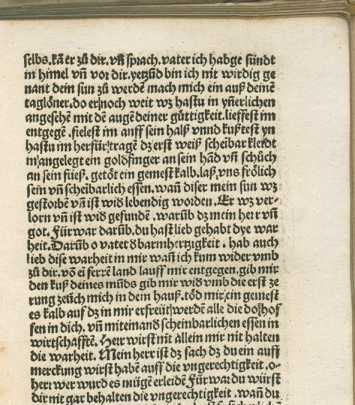 selbs. kā er zů dir. vñ sprach. vater ich hab ge sündt
in himel vñ vor dir. yetzūd bin ich nit wirdig ge
nant dein sun zů werdē mach mich ein auß deinē
taglöner. do er noch weit wz hastu in yn̄erlichen
angesehē mit dē augē deiner gůttigkeit. lieffest im
entgegē. fielest im auff sein halß vnnd kußtest yn
hastu im herfür tragē dz erst weiß scheibar kleidt
im angelegt ein goldfinger an sein hād vñ schůch
an sein fůeß. getöt ein gemest kalb. laß vns frölich
sein vñ scheibarlich essen. wañ diser mein sun wz
gestorbē vñ ist wid lebendig worden. Er wz ver-
lorn vñ ist wid gefundē. warūb dz mein her vñ
got. Für war darūb. du hast lieb gehabt dye war
heit. Darūb o vater d barmhertzigkeit. hab auch
lieb dise warheit in mir wañ ich kum wider vmb
zů dir. vō ei ferrē land lauff mir entgegen. gib mir
den kuß deines mūds gib mir wid vmb die erst ze
rung zeůch mich in dein hauß. tōd mir ein gemest
es kalb auf dz in mir erfreüt werdē alle die do hof
fen in dich. vñ miteinand scheinbarlichen essen in
wirtschafftē. Herr wirst nit allein mir nit halten
die warheit. Mein herr ist dz sach dz du ein auff
merckung wirst habē auff die vngerechtigkeit. o-
herr wer wurd es mügē erleidē Für war du würst
dir nit gar behalten die vngerechtigkeit. wañ du